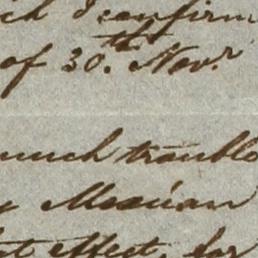 I confirm
of 30.th Novr.
much trouble
Mexican
effect, for